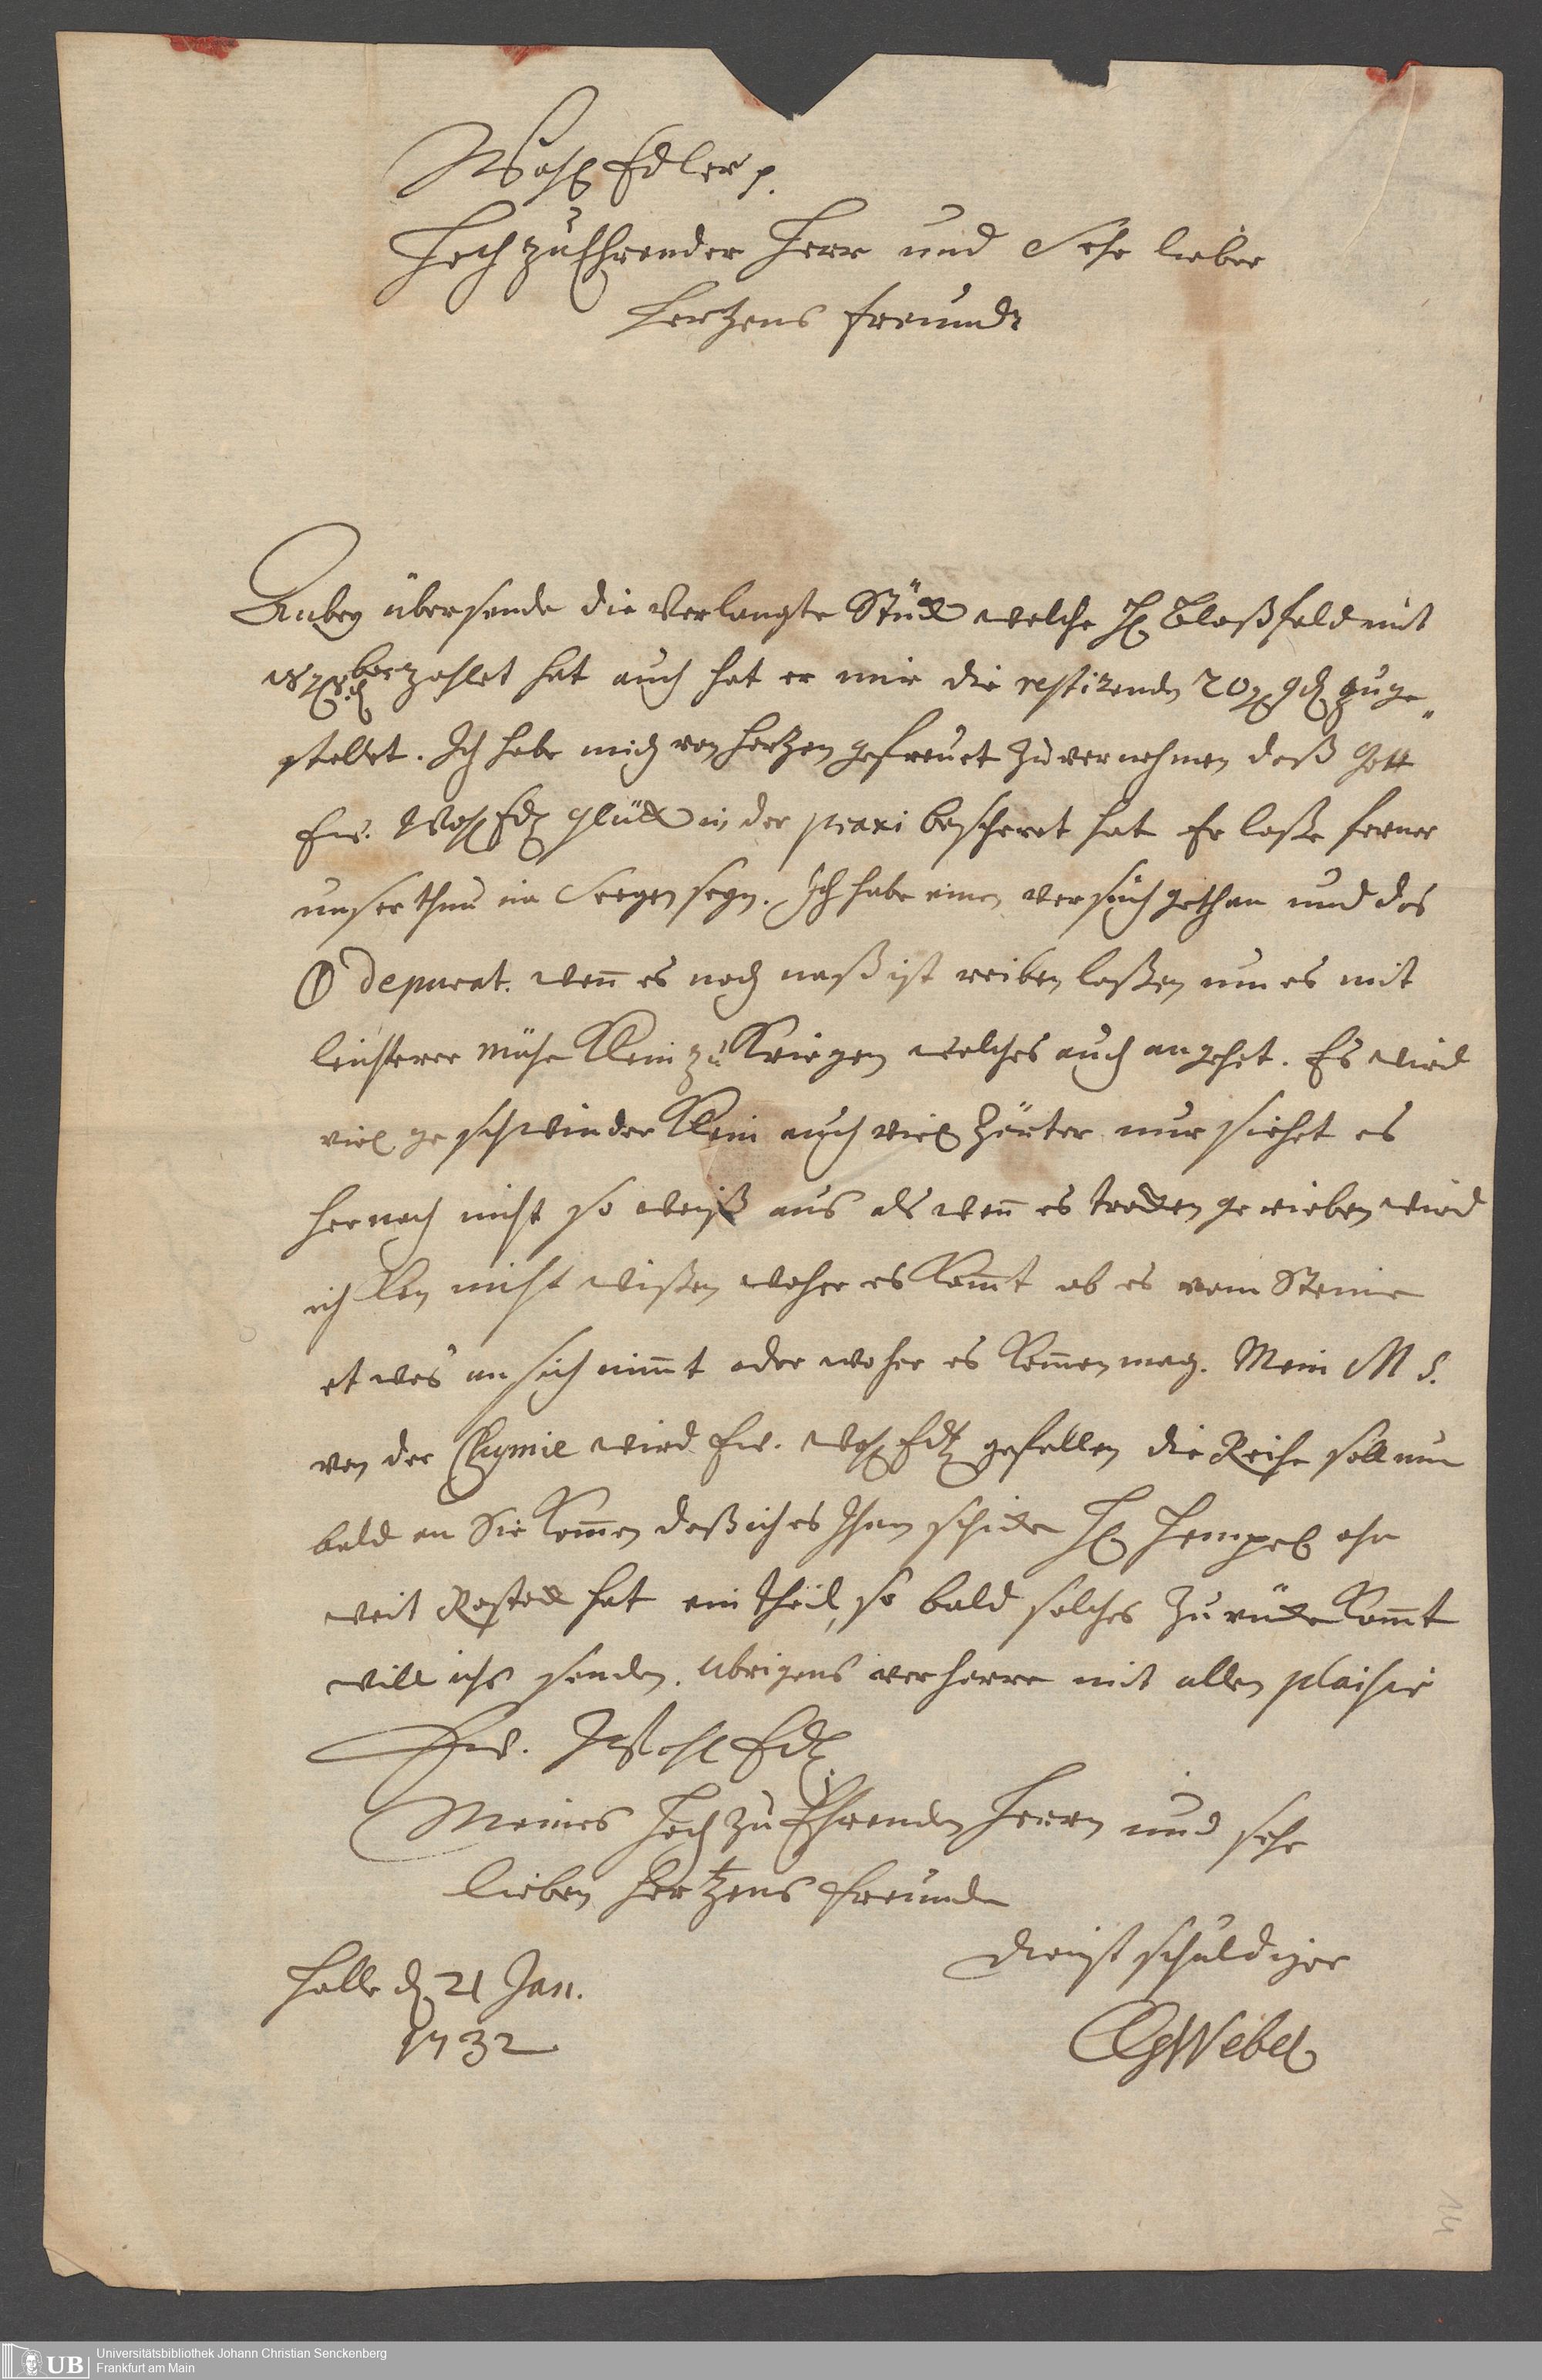 Wohl Edler p.
HochzuEhrender Herr und Sehr lieber
Hertzens freundt
Anbey übersende die Verlangte Stück welche H. Bloßfeld mit
bezahlet hat auch hat er mir die restirende zuge„
stellet. Ich habe mich von Hertzen gefreuet zu vernehmen daß Gott
Ew. Wohl Edl glück in der praxi bescheret hat Er laße ferner
unser thun im Seegen seyn. Ich habe einen versuch gethan und das
depurat. wenn es noch naß ist reiben laßen um es mit
leichterer Mühe Klein zu Kriegen welches auch angehet. Es wird
viel geschwinder Klein auch viel Zärter nur siehet es
hernach nicht so weiß aus als wenn es trocken gerieben wird
ich kan nicht wißen woher es Komt ob es vom Steine
etwas an sich nimt oder woher es Kommen mag. Mein MS.
von der Chymie wird Ew. Wohl Edl gefallen die Reihe soll nun
bald an Sie Kommen daß ich es Ihnen schicke H. Hempel ohn
weit Rostock hat ein theil, so bald solches Zurücke Komt
will ichs senden. Ubrigens verharre mit allen plaisir
Ew. Wohl Edl
Meines Hoch zu Ehrenden Herrn und sehr
lieben Hertzens freunde
dienst schuldiger
Halle d. 21 Jan.
1732
Webel
14
UB
Universitätsbibliothek Johann Christian Senckenberg
Frankfurt am Main